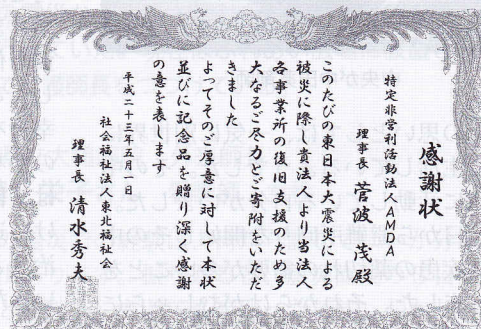 感謝状
特定非営利活動法人AMDA
理事長 菅波 茂 殿
このたびの東日本大震災による
被災に際し貴法人より当法人
各事業所の復旧支援のため多
大なるご尽力とご寄附をいただ
きました
よってそのご厚意に対して本状
並びに記念品を贈り深く感謝
の意を表します
平成二十三年五月一日
社会福祉法人東北福祉会
理事長 清水秀夫